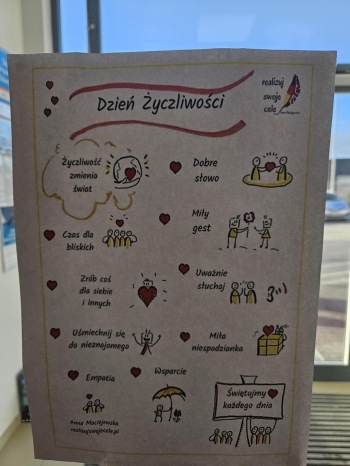 Dzień Życzliwości
realizuj
swoje
cele
Życzliwość
zmienia
świat
Dobre
słowo
Czas dla
bliskich
Miły
gest
Zrób coś
dla siebie
i innych
Uważnie
słuchaj
Uśmiechnij się
do nieznajomego
Miła
niespodzianka
Empatia
Wsparcie
Świętujmy
każdego dnia
Anna Maciejewska
realizujswojecele.pl